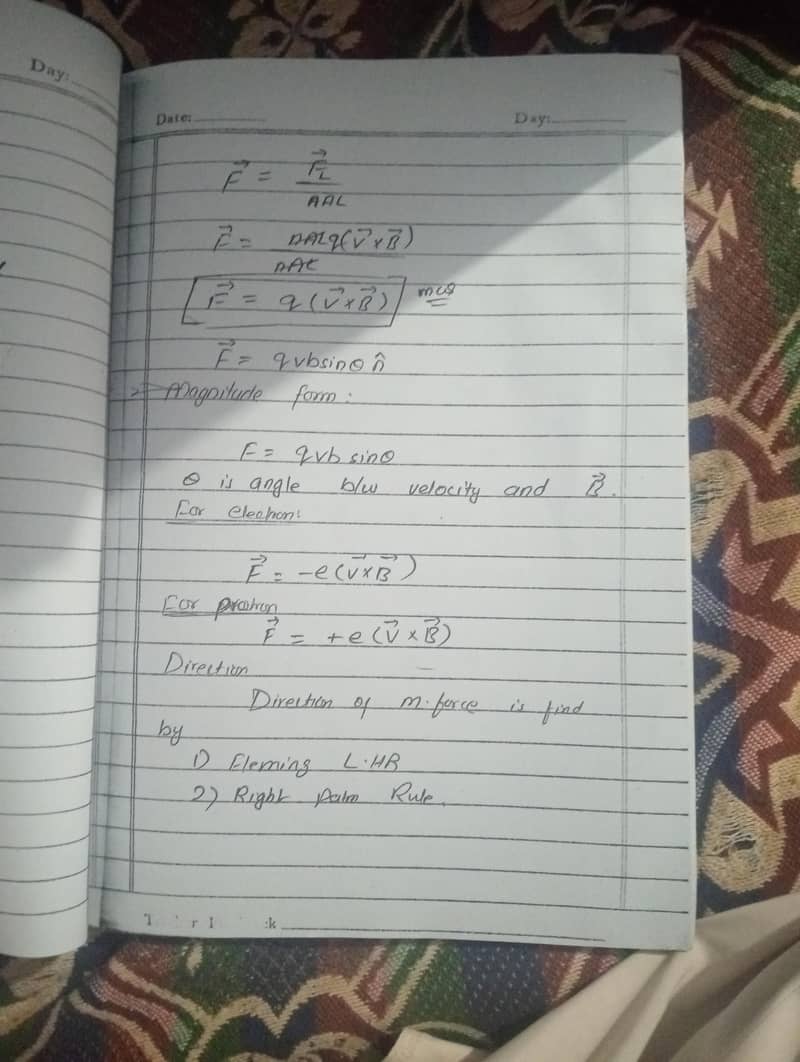 Day:
Date: Day:
F⃗ = F⃗L
nAL
F⃗ = nALq(V⃗×B⃗)
nAL
F⃗ = q(V⃗×B⃗) mcq
F⃗ = qvbsinθ n̂
Magnitude form:
F = qvb sinθ
θ is angle b/w velocity and B⃗.
For electron:
F⃗ = -e(V⃗×B⃗)
For proton
F⃗ = +e(V⃗×B⃗)
Direction
Direction of m.force is find
by
1) Fleming L.HR
2) Right Palm Rule.